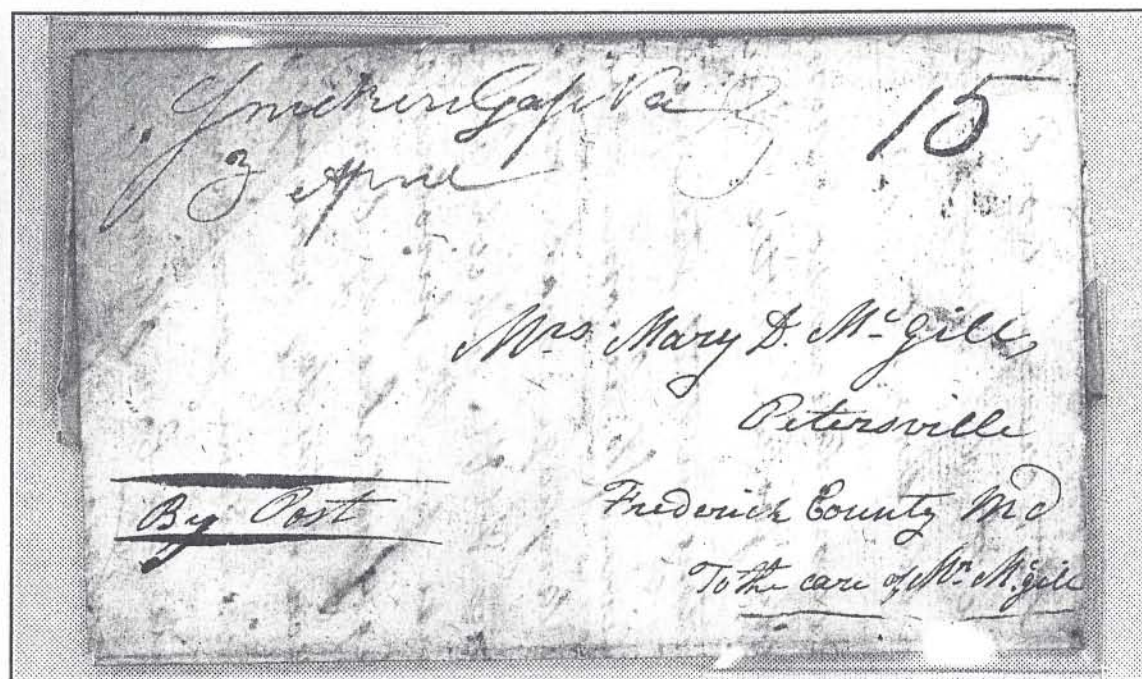 Snickers Gap Va
3 April
15
Mrs Mary D. McGill
Petersville
Frederick County Md
To the care of Mr. McGill
By Post